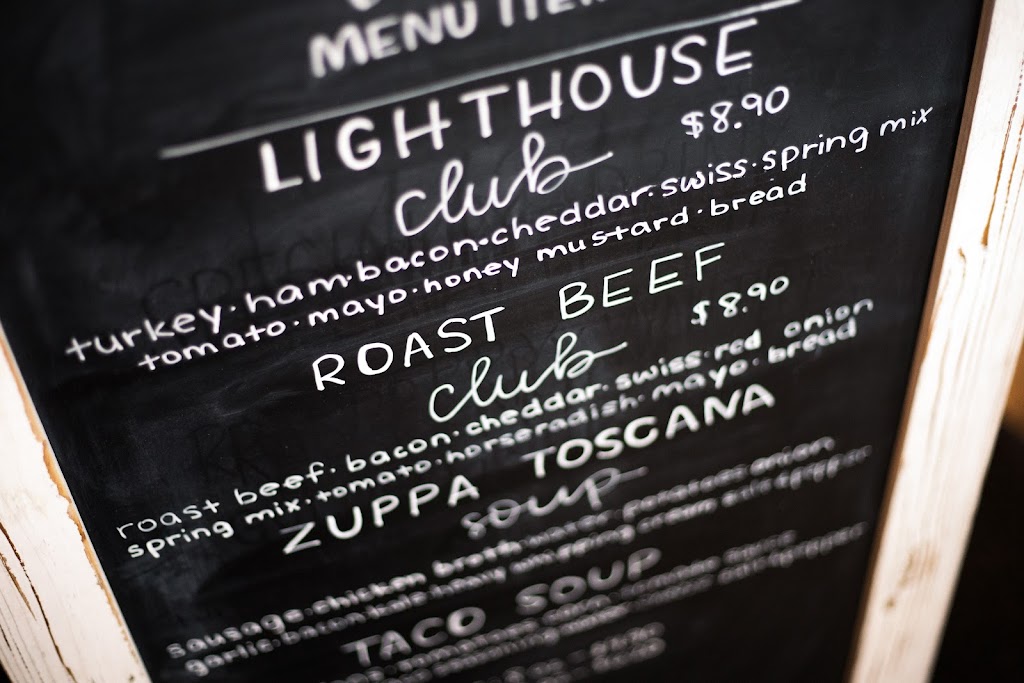 MENU ITEM
LIGHTHOUSE
club $8.90
turkey·ham·bacon·cheddar·swiss·spring mix
tomato·mayo·honey mustard·bread
ROAST BEEF
club $8.90
roast beef·bacon·cheddar·swiss·red onion
spring mix·tomato·horseradish·mayo·bread
ZUPPA TOSCANA
soup
sausage·chicken broth·water·potatoes·onion
garlic·bacon·kale·heavy whipping cream
TACO SOUP